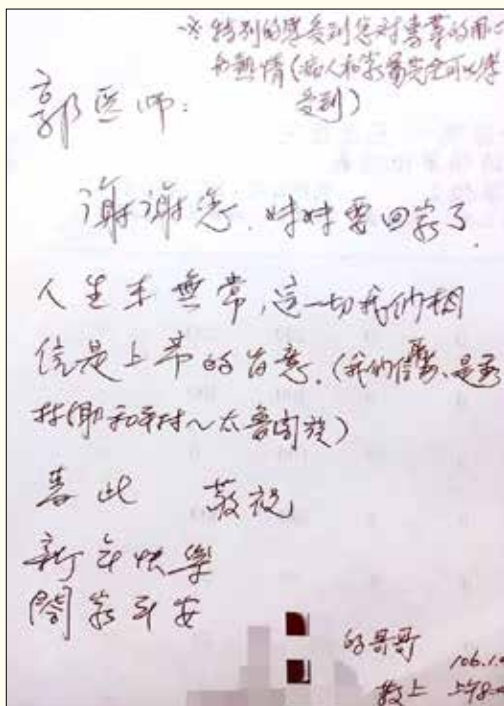 ※特別的感受到您對專業的用心
和熱情(病人和家屬完全可以感
受到)
郭医师:
谢谢您. 妹妹要回家了.
人生本無常,這一切我們相
信是上帝的旨意.(我們信教,是秀
林鄉和平村~太魯閣族)
專此 敬祝
新年快樂
閤家平安
的哥哥
敬上
106.1.
上午8: